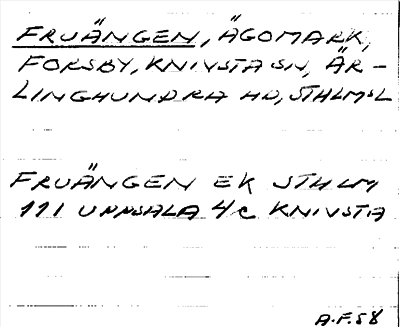 FRUÄNGEN, ÄGOMARK,
FORSBY, KNIVSTA SN, ÄR-
LINGHUNDRA HD, STHLMSL
FRUÄNGEN EK STHLM
111 UPPSALA 4c KNIVSTA
A.F.58